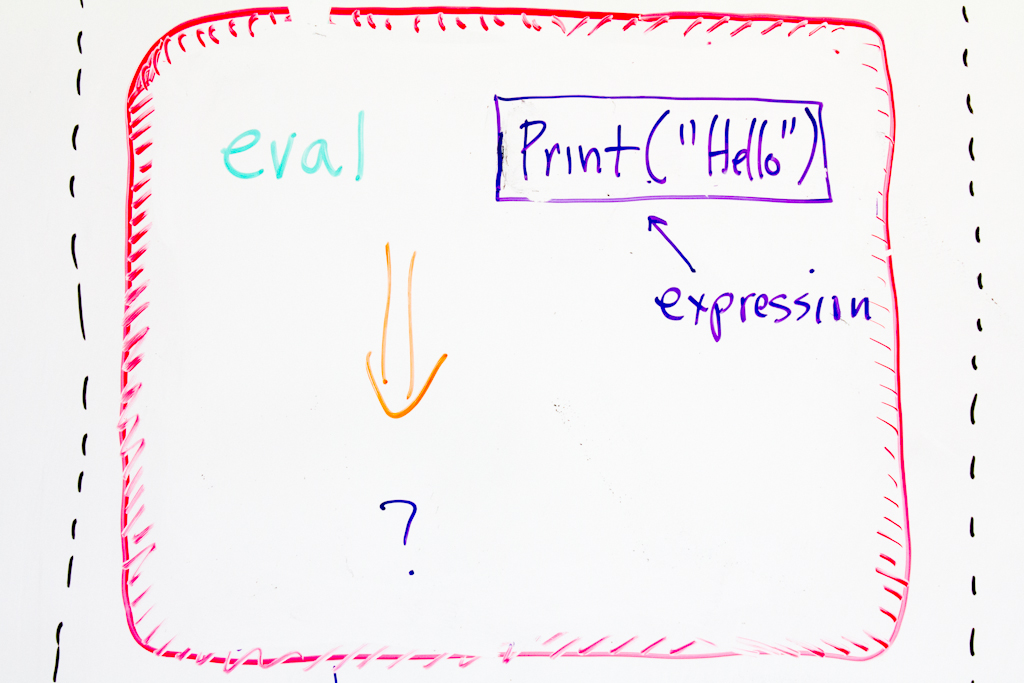 eval Print("Hello")
expression
?